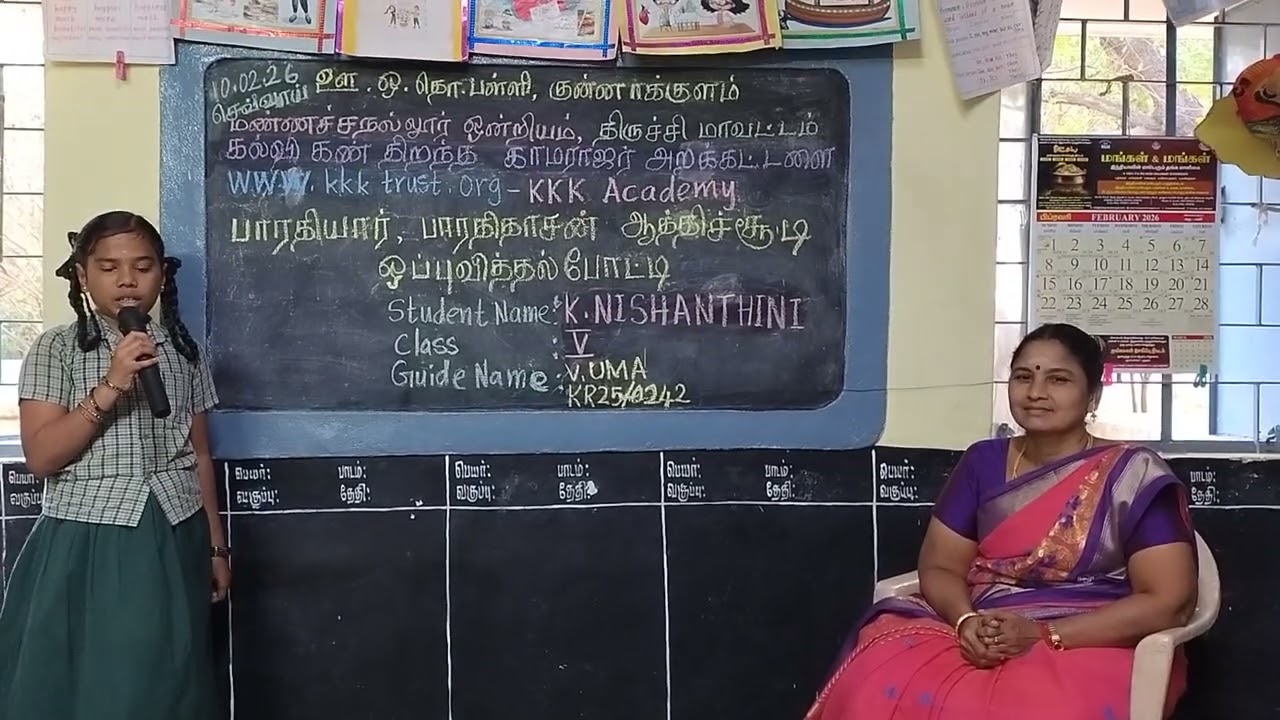 10.02.26
செவ்வாய்
ஊ.ஒ.தொ.பள்ளி, குன்னாக்குளம்
மண்ணச்சநல்லூர் ஒன்றியம், திருச்சி மாவட்டம்
கல்வி கண் திறந்த காமராஜர் அறக்கட்டளை
WWW.kkk trust.org - KKK Academy
பாரதியார், பாரதிதாசன் ஆத்திச்சூடி
ஒப்புவித்தல் போட்டி
Student Name: K.NISHANTHINI
Class : V
Guide Name: V.UMA
KR25/0242
மங்கள் & மங்கள்
பிப்ரவரி FEBRUARY 2026
SUNDAY MONDAY TUESDAY WEDNESDAY THURSDAY FRIDAY SATURDAY
1 2 3 4 5 6 7
8 9 10 11 12 13 14
15 16 17 18 19 20 21
22 23 24 25 26 27 28
பெயர்: பாடம்: பெயர்: பாடம்: பெயர்: பாடம்: பாடம்:
வகுப்பு: தேதி: வகுப்பு: தேதி: வகுப்பு: தேதி: வகுப்பு: தேதி: